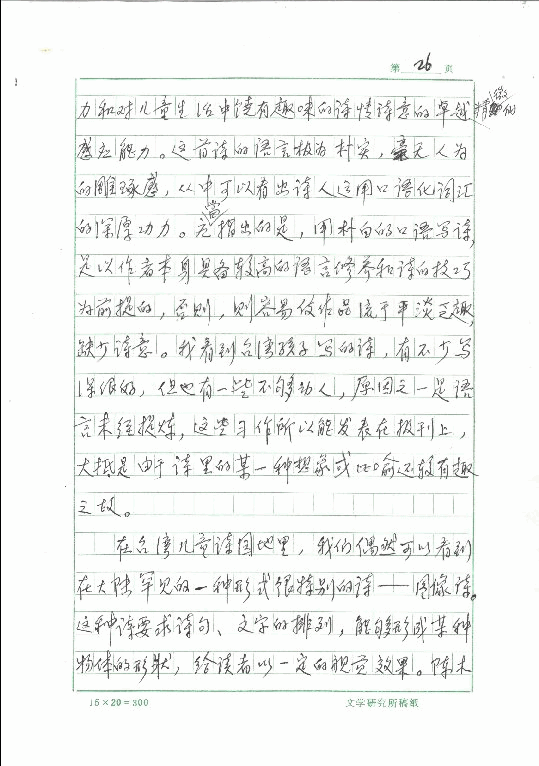 第 26 页
力和对儿童生活中饶有趣味的诗情诗意的卓越精微的
感应能力。这首诗的语言极为朴实，毫无人为
的雕琢感，从中可以看出诗人运用口语化词汇
的深厚功力。应当指出的是，用朴白的口语写诗，
是以作者本身具备较高的语言修养和诗的技巧
为前提的，否则，则容易使作品流于平淡乏趣，
缺少诗意。我看到台湾孩子写的诗，有不少写
得很好，但也有一些不够动人，原因之一是语
言未经提炼，这些习作所以能发表在报刊上，
大抵是由于诗里的某一种想象或比喻还较有趣
之故。
在台湾儿童诗园地里，我们偶然可以看到
在大陆罕见的一种形式很特别的诗——图像诗。
这种诗要求诗句、文字的排列，能够形成某种
物体的形状，给读者以一定的视觉效果。陈木
15×20=300
文学研究所稿纸